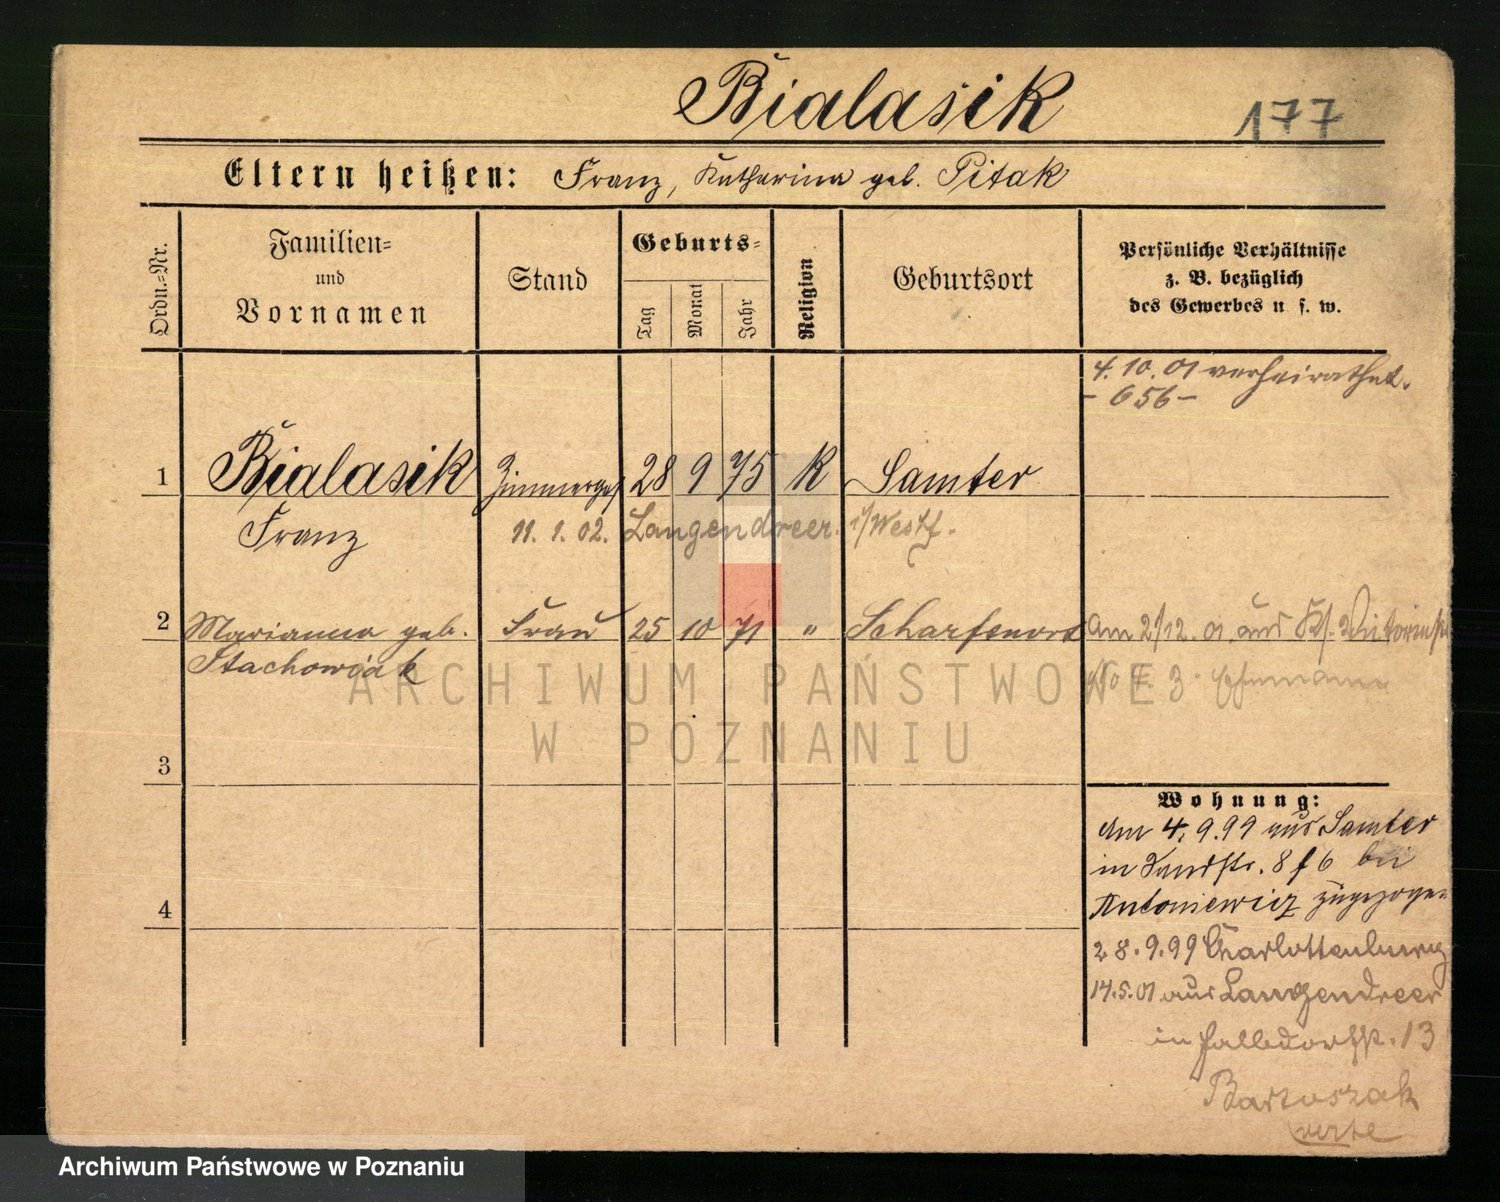 Bialasik
177
Eltern heißen: Franz, Katharina geb. Pitak
Ordn.-Nr.
Familien-
und
Vornamen
Stand
Geburts-
Tag
Monat
Jahr
Religion
Geburtsort
Persönliche Verhältnisse
z. B. bezüglich
des Gewerbes u. s. w.
4. 10. 01 verheirathet.
- 656 -
1 Bialasik Zimmerges 28 9 75 K Samter
Franz 11. 1. 02. Langendreer i/Westf.
2 Marianna geb. Frau 25 10 71 " Scharfenort Am 2/12. 01. aus
Stachowiak No 3 Ehemann
3
Wohnung:
Am 4. 9. 99 aus Samter
in Sandstr. 8 f 6 bei
4 Antoniewicz zugezogen
28. 9. 99 Charlottenburg
14. 5. 01 aus Langendreer
in 13
Bartoszak
verte
ARCHIWUM PAŃSTWOWE
W POZNANIU
Archiwum Państwowe w Poznaniu